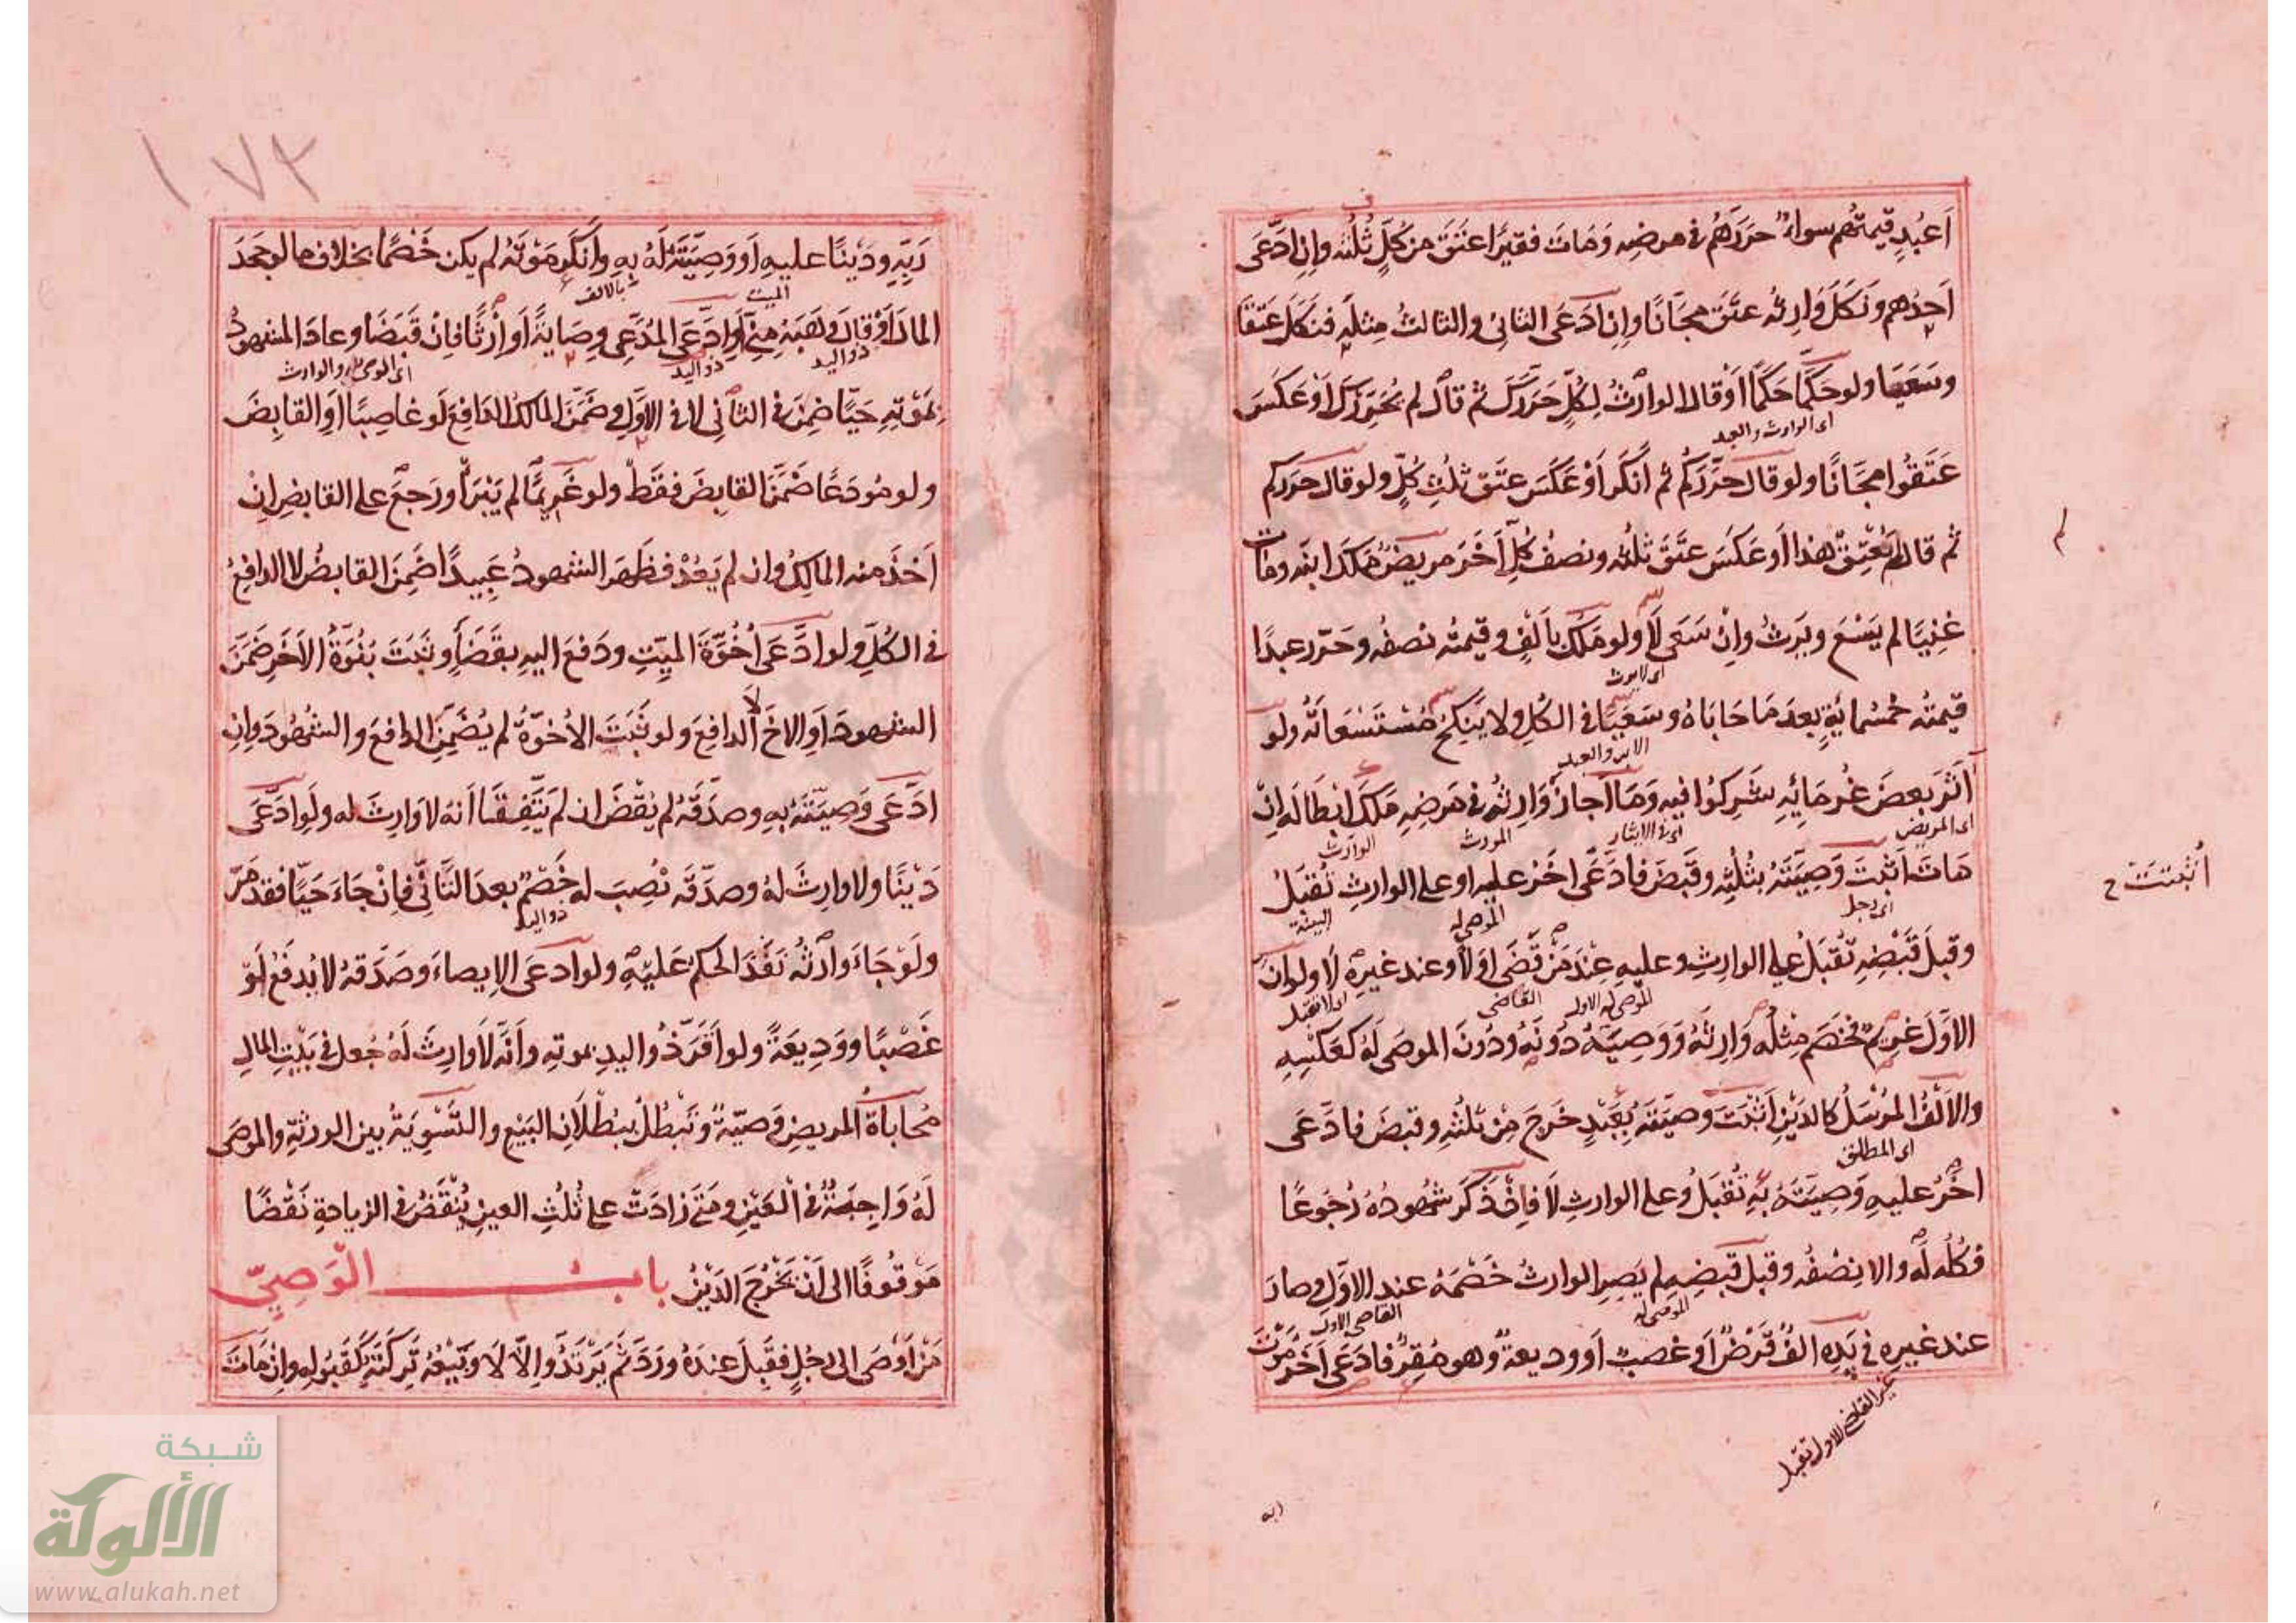 اَعبُدٍ قيمتُهم سواءٌ حرَرَهُم في مرضِه وَمَات فقيرًا عَتَقَ من كلٍّ ثُلُثُه وإنِ ادَّعَى
اَحدُهم ونَكَلَ وَارِثُه عتَقَ مجّانًا وإنِ ادَّعَى الثاني والثالثُ مِثلَه فنَكَلَ عَتَقَا
وسَعَيَا ولو حَكَمَا حَكَمًا اوْ قال الوارثُ لكُلٍّ حَرَّرَكَ ثم قال لم يُحَرِّرْكَ اَوْ عَكَسَ
اى الوارث والعبد
عَتَقُوا مجّانًا ولو قال حرَّرَكُم ثم اَنْكَر اَوْ عَكَسَ عتَقَ ثلُث كُلٍّ ولو قال حرَرَكم
ثم قال لم يُعتِقْ هذا اَو عَكَسَ عتَقَ ثلثُه ونصفُ كُلِّ اَخَرَ مريضٌ مَلَكَ ابنَه ومات
غنيًّا لم يَسْعَ ويَرِثُ وانْ سَعَى لَا ولو مَلَكَ بأَلْفٍ وقيمتُه نصفُه وحَرّر عبدًا
اى لا يرث
قيمتُه خمسُمايَةٍ بعدَ مَا حَابَاهُ وسَعَيَا في الكلِّ ولا يَنكِحُ مُسْتَسْعَاتَه ولو
الابن والعبد
آثَرَ بعضَ غُرمَائِهِ شَرِكُوا فيه وَمَا اَجازَ وَارِثُه في مَرضِهِ مَلَكَ ابْطَالَه اِنْ
اى المريض اى فى الايثار المورث الوارث
مَاتَ اَثْبتَ وَصِيَّتَهُ بثُلُثِه وقَبَضَ فادَّعَى اخَرُ عليه او على الوارثِ تُقبَلُ
اى رجل الموصى له البينة
وقبلَ قَبْضِه تُقبَلُ على الوارثِ وعليه عِنْدَ مَنْ قَضَى اوّلًا وعند غيرِه لَا ولو ان
الموصى له الاول القاضى اى لا تقبل
الاَوَّلَ غريمٌ فخَصْم مِثلُه وَارِثُهُ وَوَصِيَّهُ دُونَهُ ودُونَ الموصَى لهُ كعَكسِهِ
والاَلْفُ المُرْسَلُ كالدَيْنِ اَثْبَتَ وصيّتَهُ بعَبْدٍ خَرَجَ مِنْ ثلُثِه وقبضَ فادَّعَى
اى المطلق
اخَرُ عليهِ وَصِيّتَهُ بهِ تُقبَلُ وعلى الوارثِ لَا فاِنْ ذَكَرَ شهودُهُ رُجُوعًا
فكُلُّه لَه والا نِصْفُه وقبلَ قَبضِهِ لم يَصِرِ الوارثُ خَصْمَهُ عند الاوَّلِ وصارَ
الموصى له القاضى الاول
عند غيرِه في يَدِه الفٌ قَرْضٌ اَو غصبٌ اَو وديعةٌ وهو مُقِرٌّ فادَعَى اخَرُ مَوْتَ
غير القاضى الاول تقبل
لم
اُثْبتَتْ ح
١٧٢
رَبِّهِ ودَيْنًا عليهِ اَو وَصِيَّتَهُ لَهُ بهِ واَنكَرَ مَوْتَهُ لم يكن خَصْمًا بخلاف ما لو جَحَدَ
الميت بالالف
المالَ اَوْ قالَ وهَبَهُ مِنِّي اَوِ ادَّعَى المُدَّعِى وِصَايَةً اَو اِرْثًا فانْ قَبَضَا وعادَ المشهودُ
ذو اليد ذو اليد اى الوصى والوارث
بمَوْتِهِ حَيًّا ضَمِنَ في الثاني لا في الاوَّلِ وضَمَّنَ المالكُ الدافِعَ لَو غاصِبًا اوِ القابِضَ
ولو مُودَعًا ضَمَّنَ القابِضَ فقَطْ ولو غَرِيمًا لم يَبْرَأْ ورَجَعَ على القابضِ اِنْ
اَخَذَ منه المالِكُ وان لم يَعُدْ فظَهَرَ الشهودُ عَبِيدًا ضَمِنَ القابضُ لا الدافعُ
في الكُلِّ ولو ادَّعَى اُخُوَّةَ الميِّتِ ودَفعَ اليهِ بقَضَاءٍ وثَبَتَ بُنُوَّةُ الاَخَرِ ضَمَّنَ
الشهودَ اَوِ الاخَ لَا الدافِعَ ولو ثَبَتَ الاُخوَّةُ لم يُضَمِّنِ الدافعَ والشُهُودَ وانِ
ادَّعَى وَصِيَّتَهُ بهِ وصدَّقَهُ لم يُقْضَ ان لم يَتَّفِقَا اَنهُ لا وَارِثَ له ولَوِ ادَّعَى
دَيْنًا ولا وارِثَ لهُ وصدَّقَه نُصِبَ له خَصْمٌ بعدَ التَأَنِّى فاِنْ جَاءَ حَيًّا فقد مَرَّ
ذو اليد
ولَوْ جَاءَ وَارِثُه نَفَذَ الحكمُ عَليْهِ ولو ادعَى الاِيصاءَ وصَدَّقهُ لا يُدفَعُ لَوْ
غَصْبًا ووَدِيعَةً ولو اَقَرَّ ذُو اليدِ بموتِهِ واَنَّه لَا وارِثَ لَهُ جُعل في بَيْتِ المالِ
مُحاباةُ المريضِ وَصِيّةٌ وتَبْطُلُ ببُطْلَانِ البَيْعِ والتَسْوِيَةُ بين الورثةِ والموصَى
لَهُ وَاجِبَةٌ في العَيْنِ ومتَى زادَتْ على ثُلُثِ العينِ يُنْقَضُ في الزيادةِ نَقْضًا
مَوْقُوفًا الى اَنْ يَخْرُجَ الدَيْنُ باب الوَصِيّ
مَنْ اَوْصَى الى رجُلٍ فقَبِلَ عندَهُ ورَدَّ ثَمَّ يَرْتَدُّ والّا لَا وبَيْعُهُ تَرِكَتَهُ كقَبُولِهِ وانْ مَاتَ
شبكة
الألوكة
www.alukah.net